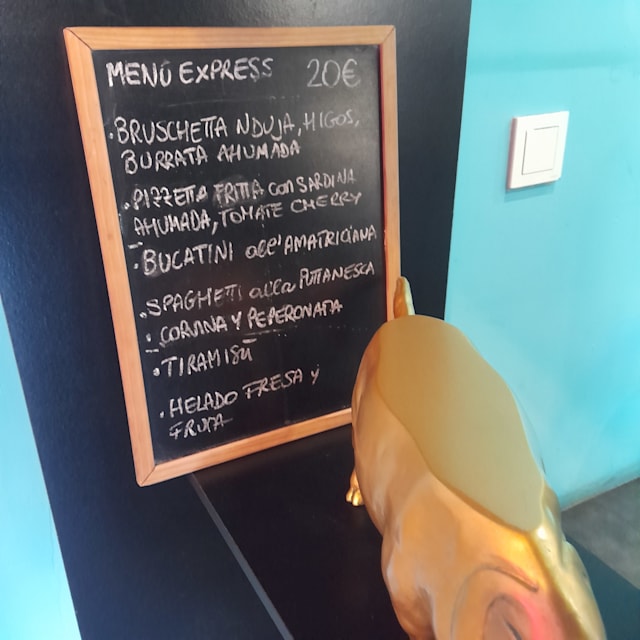 MENÚ EXPRESS 20€
• BRUSCHETTA NDUJA, HIGOS,
BURRATA AHUMADA
• PIZZETTA FRITTA con SARDINA
AHUMADA, TOMATE CHERRY
• BUCATINI all'AMATRICIANA
• SPAGHETTI alla PUTTANESCA
• CORVINA Y PEPERONATA
• TIRAMISÚ
• HELADO FRESA y
FRUTA